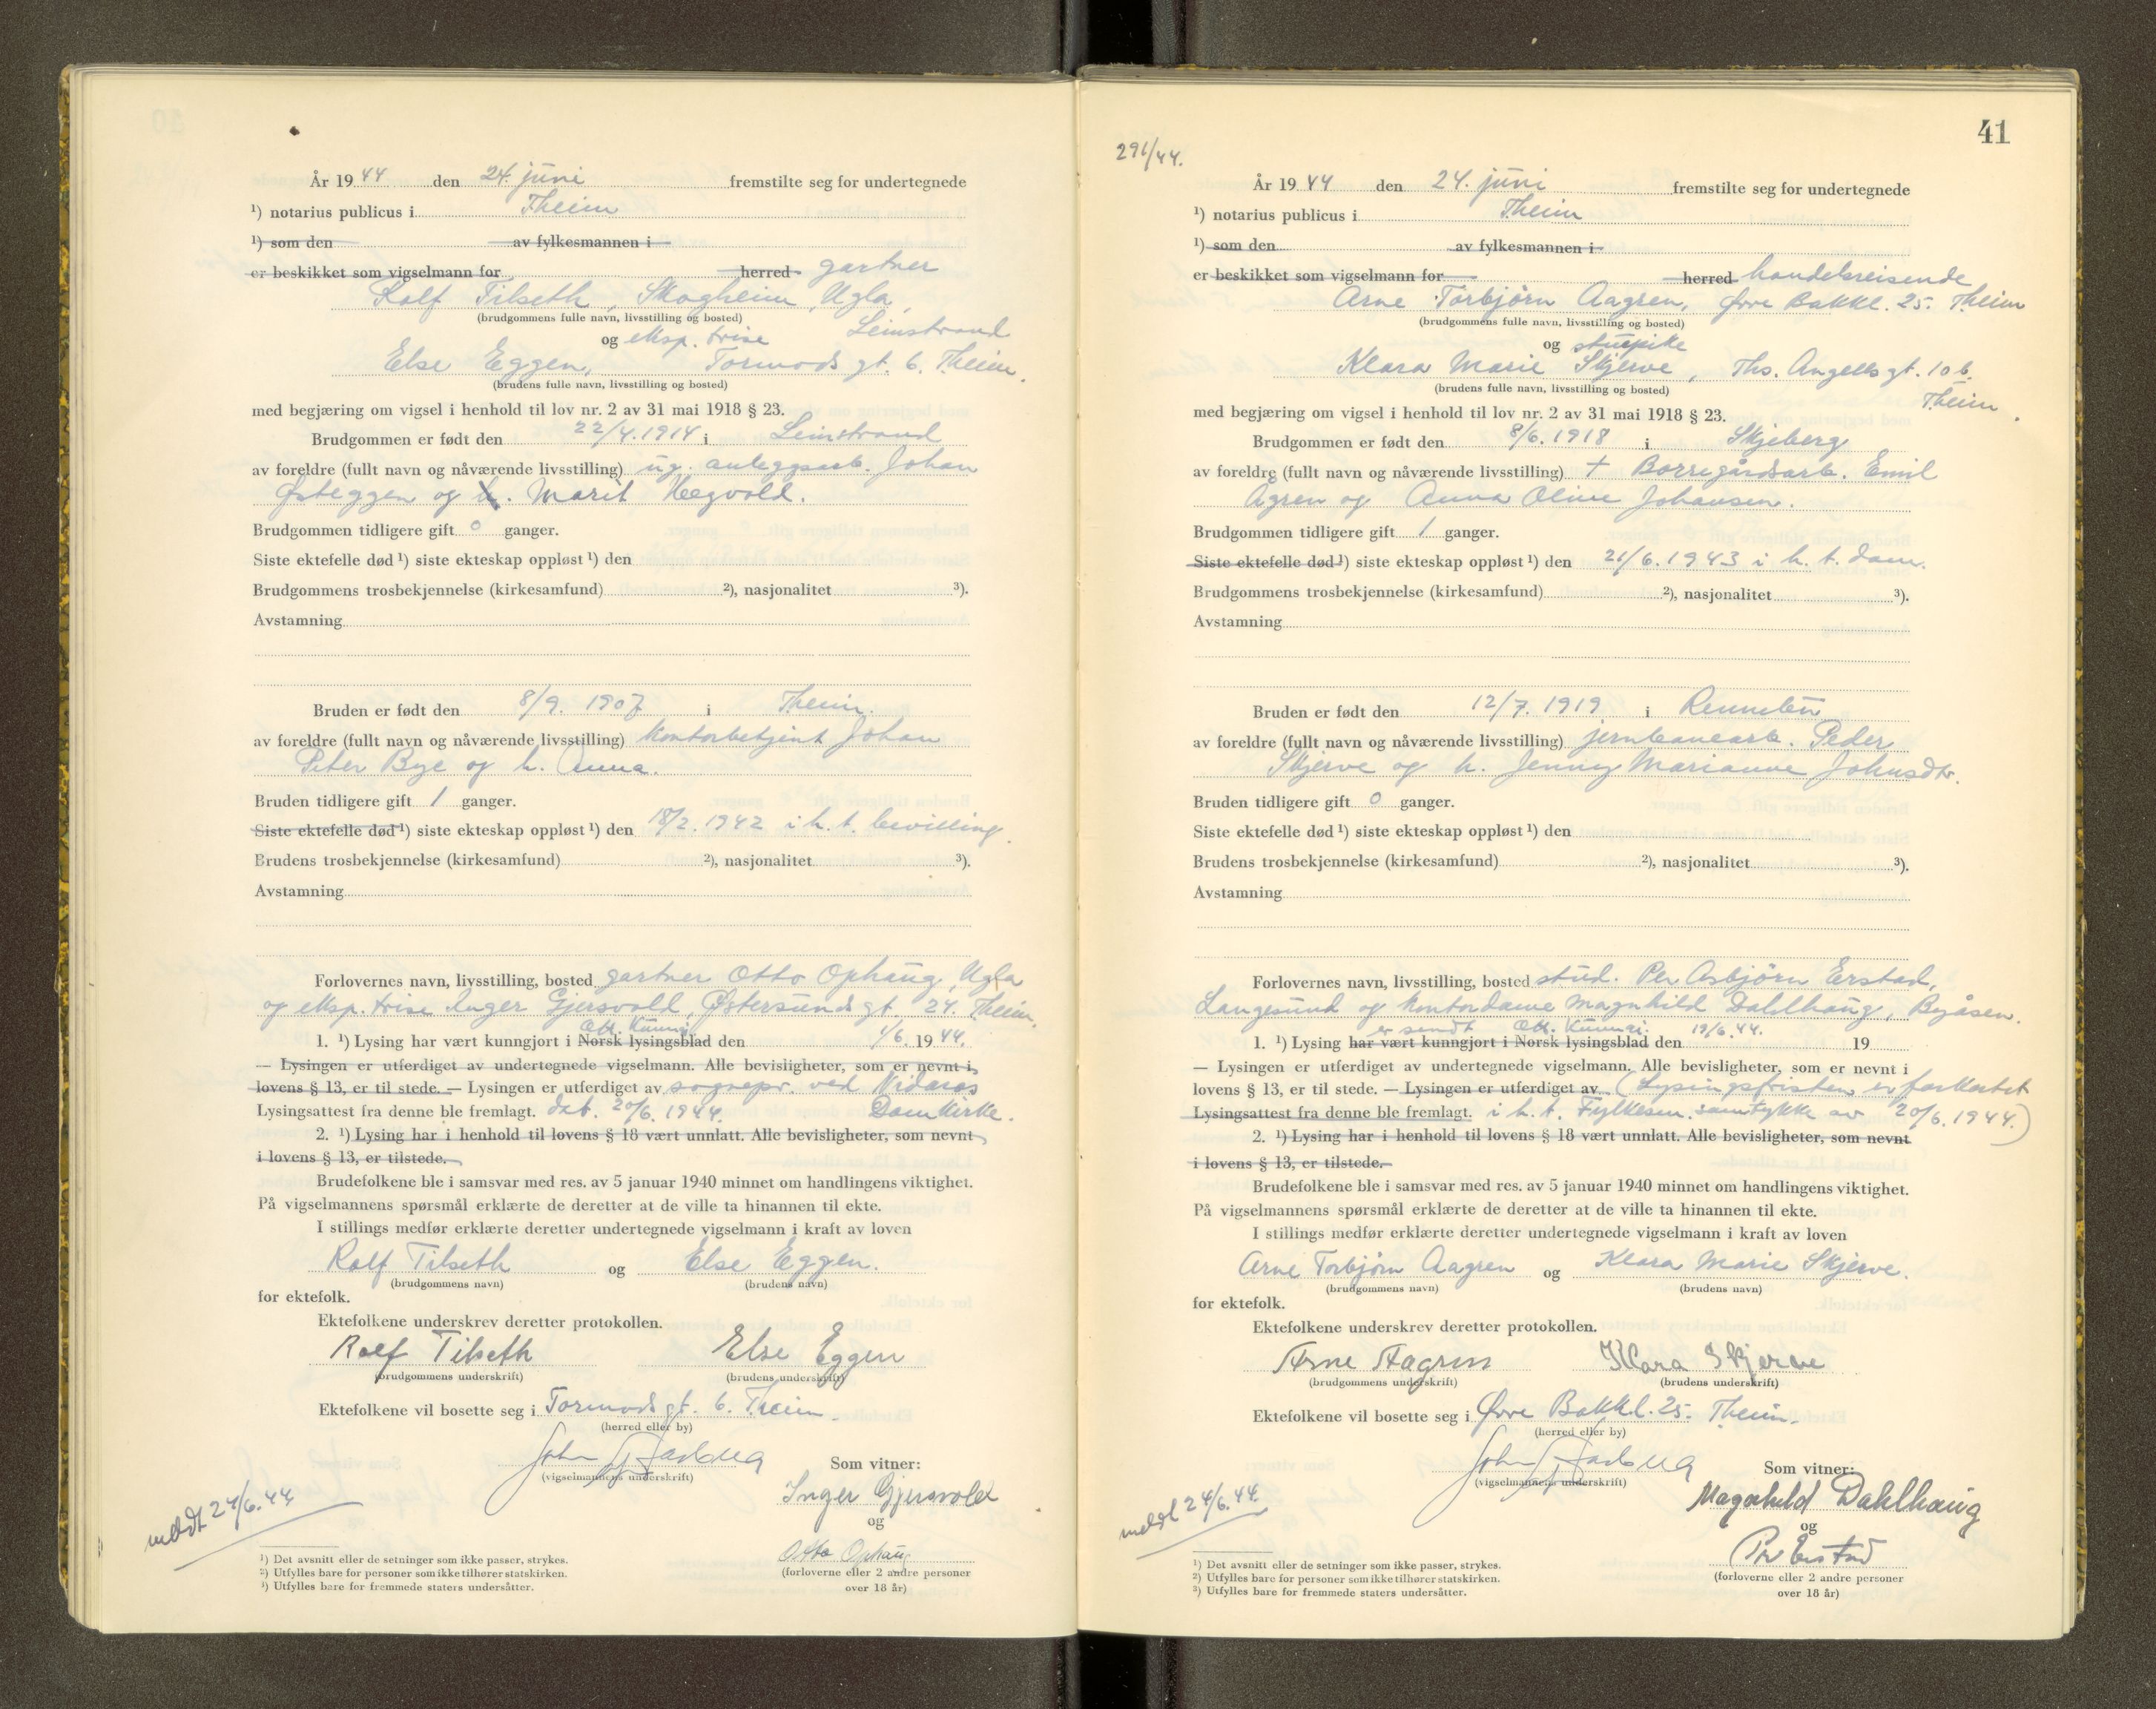 År 19 44 den 24. juni fremstilte seg for undertegnede
¹) notarius publicus i Theim
¹) som den av fylkesmannen i
er beskikket som vigselmann for herred gartner
Rolf Tilseth, Skogheim, Ugla,
(brudgommens fulle navn, livsstilling og bosted)
Leinstrand
og eksp. trise
Else Eggen, Tormods gt. 6. Theim.
(brudens fulle navn, livsstilling og bosted)
med begjæring om vigsel i henhold til lov nr. 2 av 31 mai 1918 § 23.
Brudgommen er født den 22/4. 1914 i Leinstrand
av foreldre (fullt navn og nåværende livsstilling) ug. anleggsarb. Johan
Østeggen og h. Marit Hegvold.
Brudgommen tidligere gift 0 ganger.
Siste ektefelle død ¹) siste ekteskap oppløst ¹) den
Brudgommens trosbekjennelse (kirkesamfund) ²), nasjonalitet ³).
Avstamning
Bruden er født den 8/9. 1907 i Theim.
av foreldre (fullt navn og nåværende livsstilling) kontorbetjent Johan
Peter Bye og h. Anna.
Bruden tidligere gift 1 ganger.
Siste ektefelle død ¹) siste ekteskap oppløst ¹) den 18/2. 1942 i h. t. bevilling.
Brudens trosbekjennelse (kirkesamfund) ²), nasjonalitet ³).
Avstamning
Forlovernes navn, livsstilling, bosted gartner Otto Ophaug, Ugla
og eksp. trise Inger Gjersvold, Østersunds gt. 24. Theim.
Off. Kunngj.
1. ¹) Lysing har vært kunngjort i Norsk lysingsblad den 1/6. 19 44.
— Lysingen er utferdiget av undertegnede vigselmann. Alle bevisligheter, som er nevnt i
lovens § 13, er til stede. — Lysingen er utferdiget av sognepr. ved Nidaros
Lysingsattest fra denne ble fremlagt. dat. 20/6. 1944. Domkirke.
2. ¹) Lysing har i henhold til lovens § 18 vært unnlatt. Alle bevisligheter, som nevnt
i lovens § 13, er tilstede.
Brudefolkene ble i samsvar med res. av 5 januar 1940 minnet om handlingens viktighet.
På vigselmannens spørsmål erklærte de deretter at de ville ta hinannen til ekte.
I stillings medfør erklærte deretter undertegnede vigselmann i kraft av loven
Rolf Tilseth og Else Eggen.
(brudgommens navn) (brudens navn)
for ektefolk.
Ektefolkene underskrev deretter protokollen.
Rolf Tilseth Else Eggen
(brudgommens underskrift) (brudens underskrift)
Ektefolkene vil bosette seg i Tormods gt. 6. Theim.
(herred eller by)
John
(vigselmannens underskrift)
Som vitner:
Inger Gjersvold
og
Otto Ophaug
(forloverne eller 2 andre personer
over 18 år)
meldt 24/6. 44.
¹) Det avsnitt eller de setninger som ikke passer, strykes.
²) Utfylles bare for personer som ikke tilhører statskirken.
³) Utfylles bare for fremmede staters undersåtter.
41
291/44.
År 19 44 den 24. juni fremstilte seg for undertegnede
¹) notarius publicus i Theim
¹) som den av fylkesmannen i
er beskikket som vigselmann for herred handelsreisende
Arne Torbjörn Aagren, Øvre Bakkl. 25. Theim
(brudgommens fulle navn, livsstilling og bosted)
og stuepike
Klara Marie Skjerve, Ths. Angells gt. 10 b.
(brudens fulle navn, livsstilling og bosted)
Theim.
med begjæring om vigsel i henhold til lov nr. 2 av 31 mai 1918 § 23.
Brudgommen er født den 8/6. 1918 i Skjeberg
av foreldre (fullt navn og nåværende livsstilling) † Borregårdsarb. Emil
Ågren og Anna Oline Johansen.
Brudgommen tidligere gift 1 ganger.
Siste ektefelle død ¹) siste ekteskap oppløst ¹) den 21/6. 1943 i h. t. dom.
Brudgommens trosbekjennelse (kirkesamfund) ²), nasjonalitet ³).
Avstamning
Bruden er født den 12/7. 1919 i Rennebu
av foreldre (fullt navn og nåværende livsstilling) jernbanearb. Peder
Skjerve og h. Jenny Marianne Johnsdtr.
Bruden tidligere gift 0 ganger.
Siste ektefelle død ¹) siste ekteskap oppløst ¹) den
Brudens trosbekjennelse (kirkesamfund) ²), nasjonalitet ³).
Avstamning
Forlovernes navn, livsstilling, bosted stud. Per Asbjörn Erstad,
Langesund og kontordame Magnhild Dahlhaug, Byåsen.
er sendt Off. Kunngj. 19/6. 44.
1. ¹) Lysing har vært kunngjort i Norsk lysingsblad den 19
— Lysingen er utferdiget av undertegnede vigselmann. Alle bevisligheter, som er nevnt i
lovens § 13, er til stede. — Lysingen er utferdiget av (Lysingsfristen er forkortet
Lysingsattest fra denne ble fremlagt. i h. t. Fylkesm. samtykke av 20/6. 1944.)
2. ¹) Lysing har i henhold til lovens § 18 vært unnlatt. Alle bevisligheter, som nevnt
i lovens § 13, er tilstede.
Brudefolkene ble i samsvar med res. av 5 januar 1940 minnet om handlingens viktighet.
På vigselmannens spørsmål erklærte de deretter at de ville ta hinannen til ekte.
I stillings medfør erklærte deretter undertegnede vigselmann i kraft av loven
Arne Torbjørn Aagren og Klara Marie Skjerve.
(brudgommens navn) (brudens navn)
for ektefolk.
Ektefolkene underskrev deretter protokollen.
Arne Aagren Klara Skjerve
(brudgommens underskrift) (brudens underskrift)
Ektefolkene vil bosette seg i Øvre Bakkl. 25. Theim.
(herred eller by)
John
(vigselmannens underskrift)
Som vitner:
Magnhild Dahlhaug
og
Per Erstad
(forloverne eller 2 andre personer
over 18 år)
meldt 24/6. 44.
¹) Det avsnitt eller de setninger som ikke passer, strykes.
²) Utfylles bare for personer som ikke tilhører statskirken.
³) Utfylles bare for fremmede staters undersåtter.